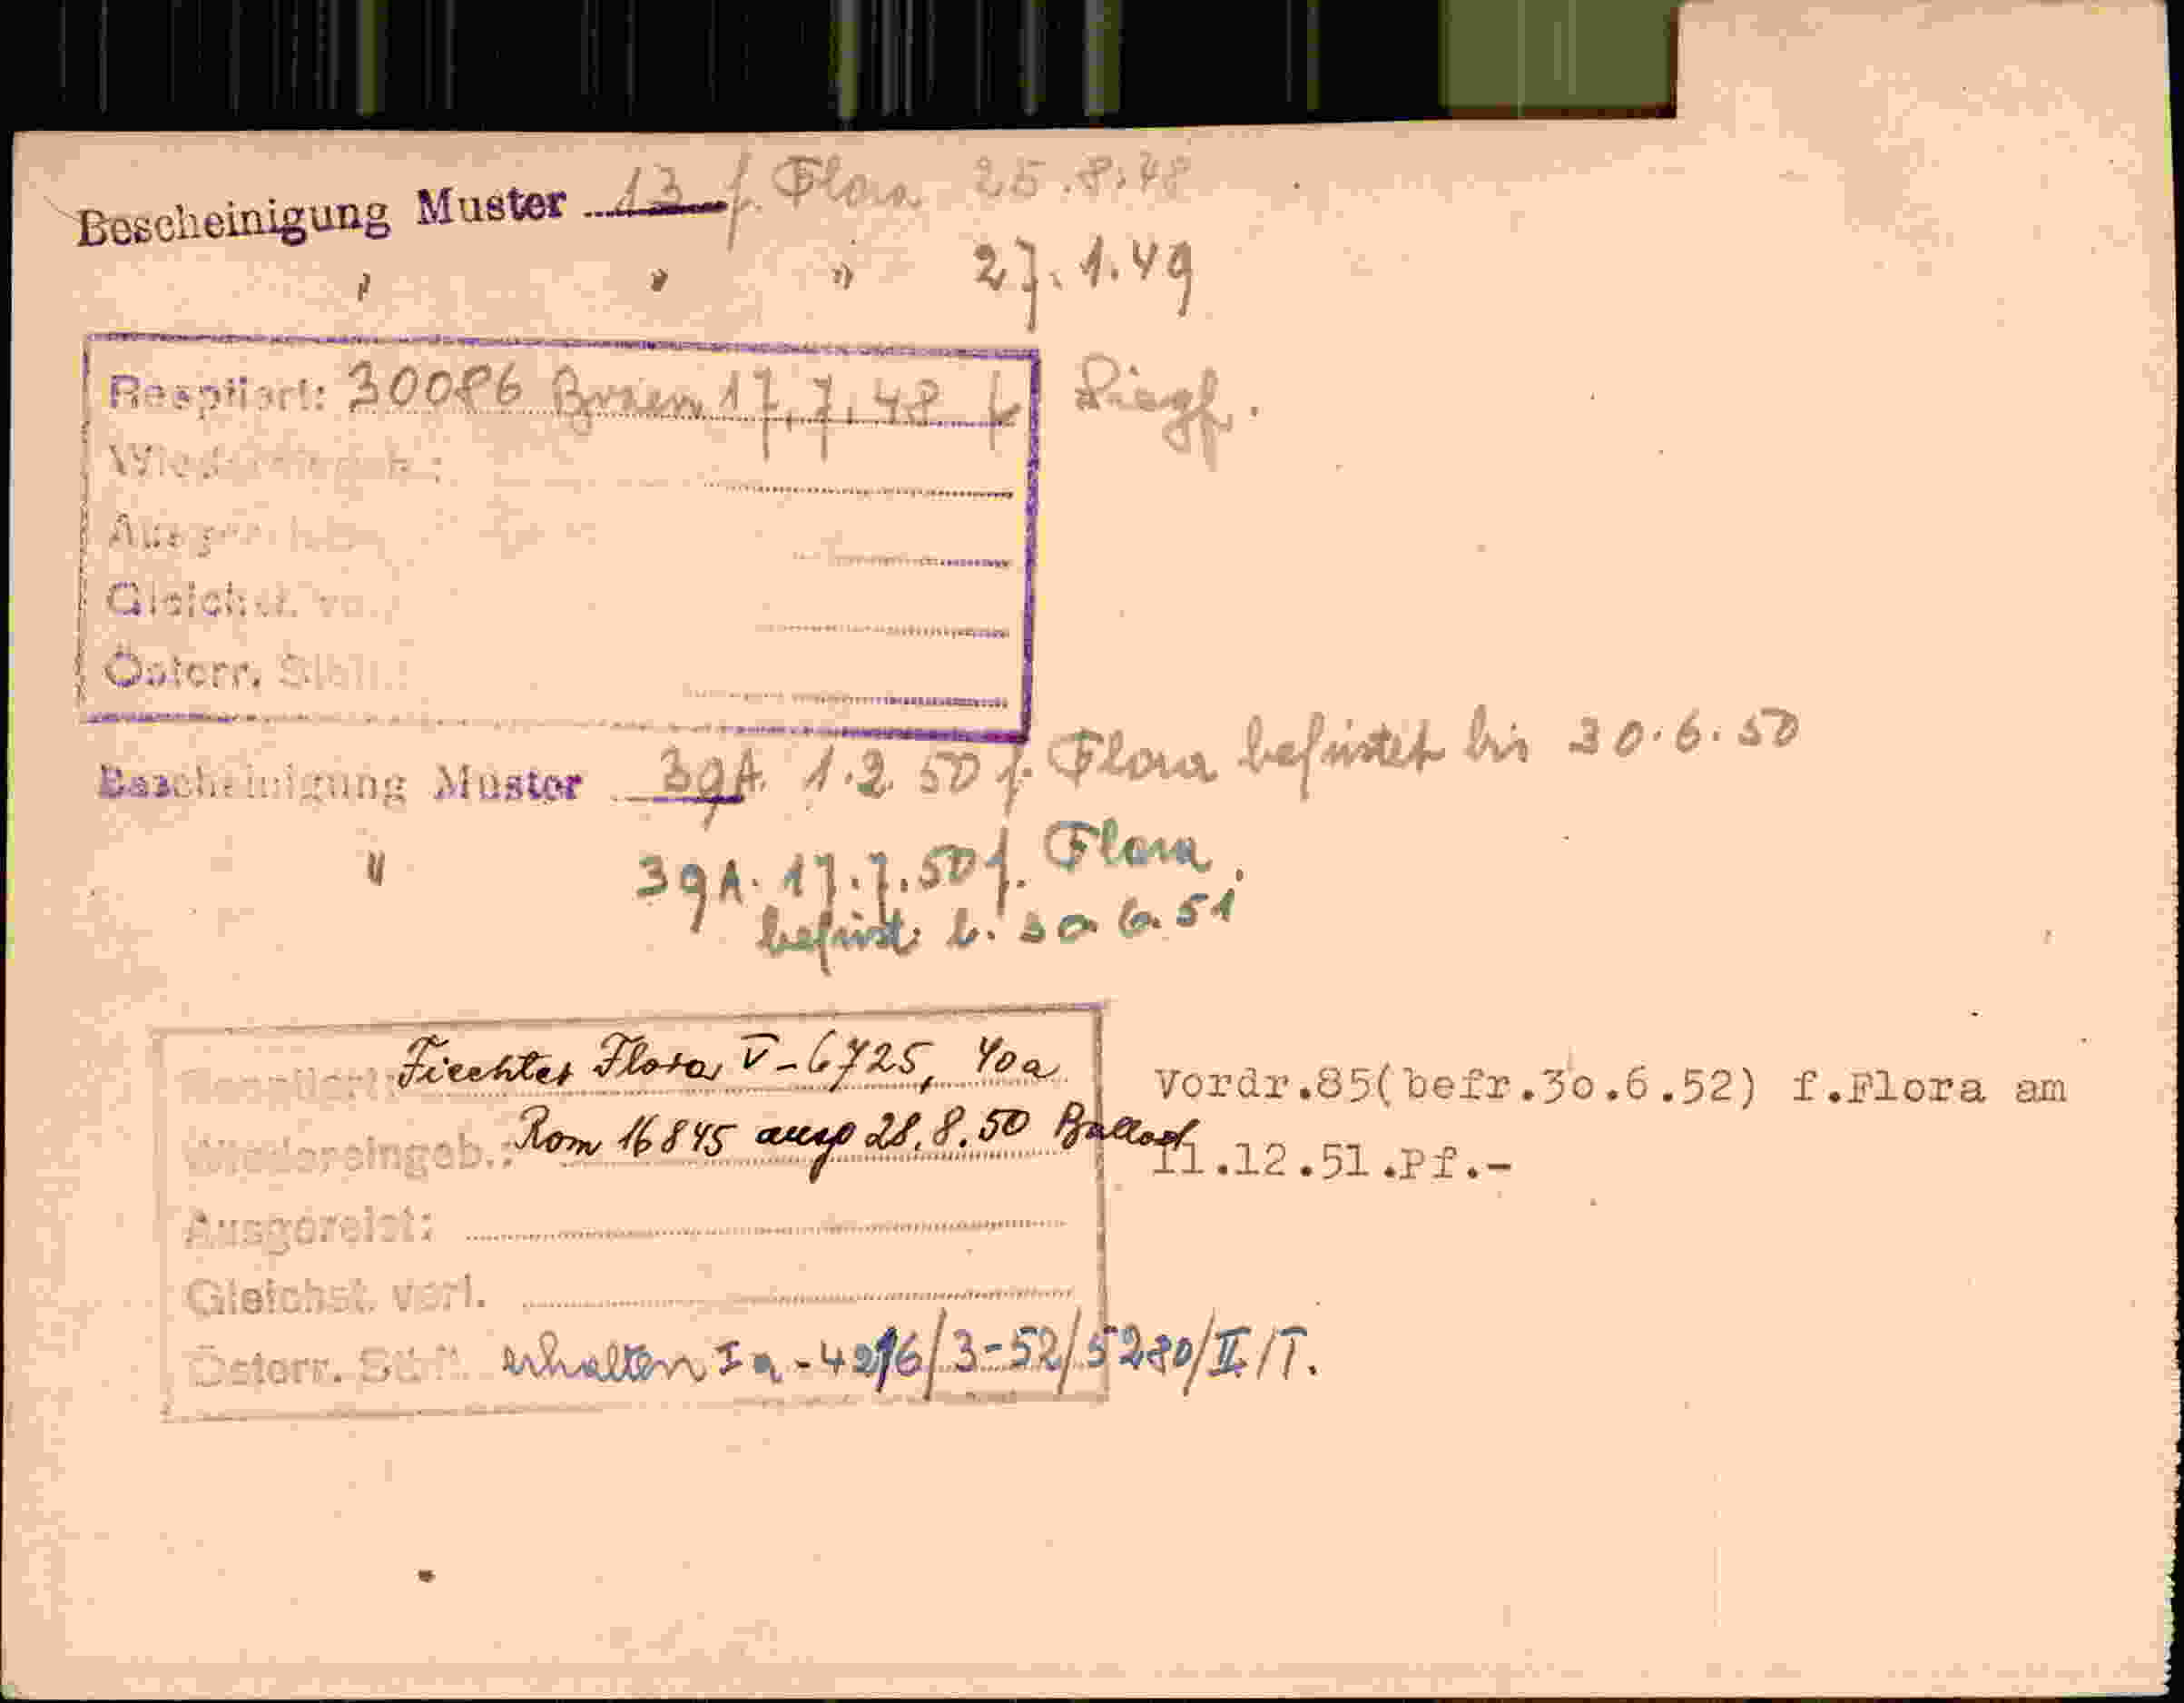 Bescheinigung Muster 13 f. Flora 25.8.48
" " " 27.1.49
Reoptiert: 30086 Bozen 17.7.48 f. Siegf.
Wiedereingeb.:
Ausgereist:
Gleichst. verl.
Österr. Stb.
Bescheinigung Muster 39A. 1.2.50 f. Flora befristet bis 30.6.50
" 39A. 17.7.50 f. Flora
befrist. b. 30.6.51
Reoptiert: Fiechter Flora V-6725, 40a
Wiedereingeb.: Rom 16845 ausg 28.8.50
Vordr.85(befr.3o.6.52) f.Flora am
11.12.51.Pf.-
Ausgereist:
Gleichst. verl.
Österr. Stb. erhalten Ia-4296/3-52/5280/II/T.